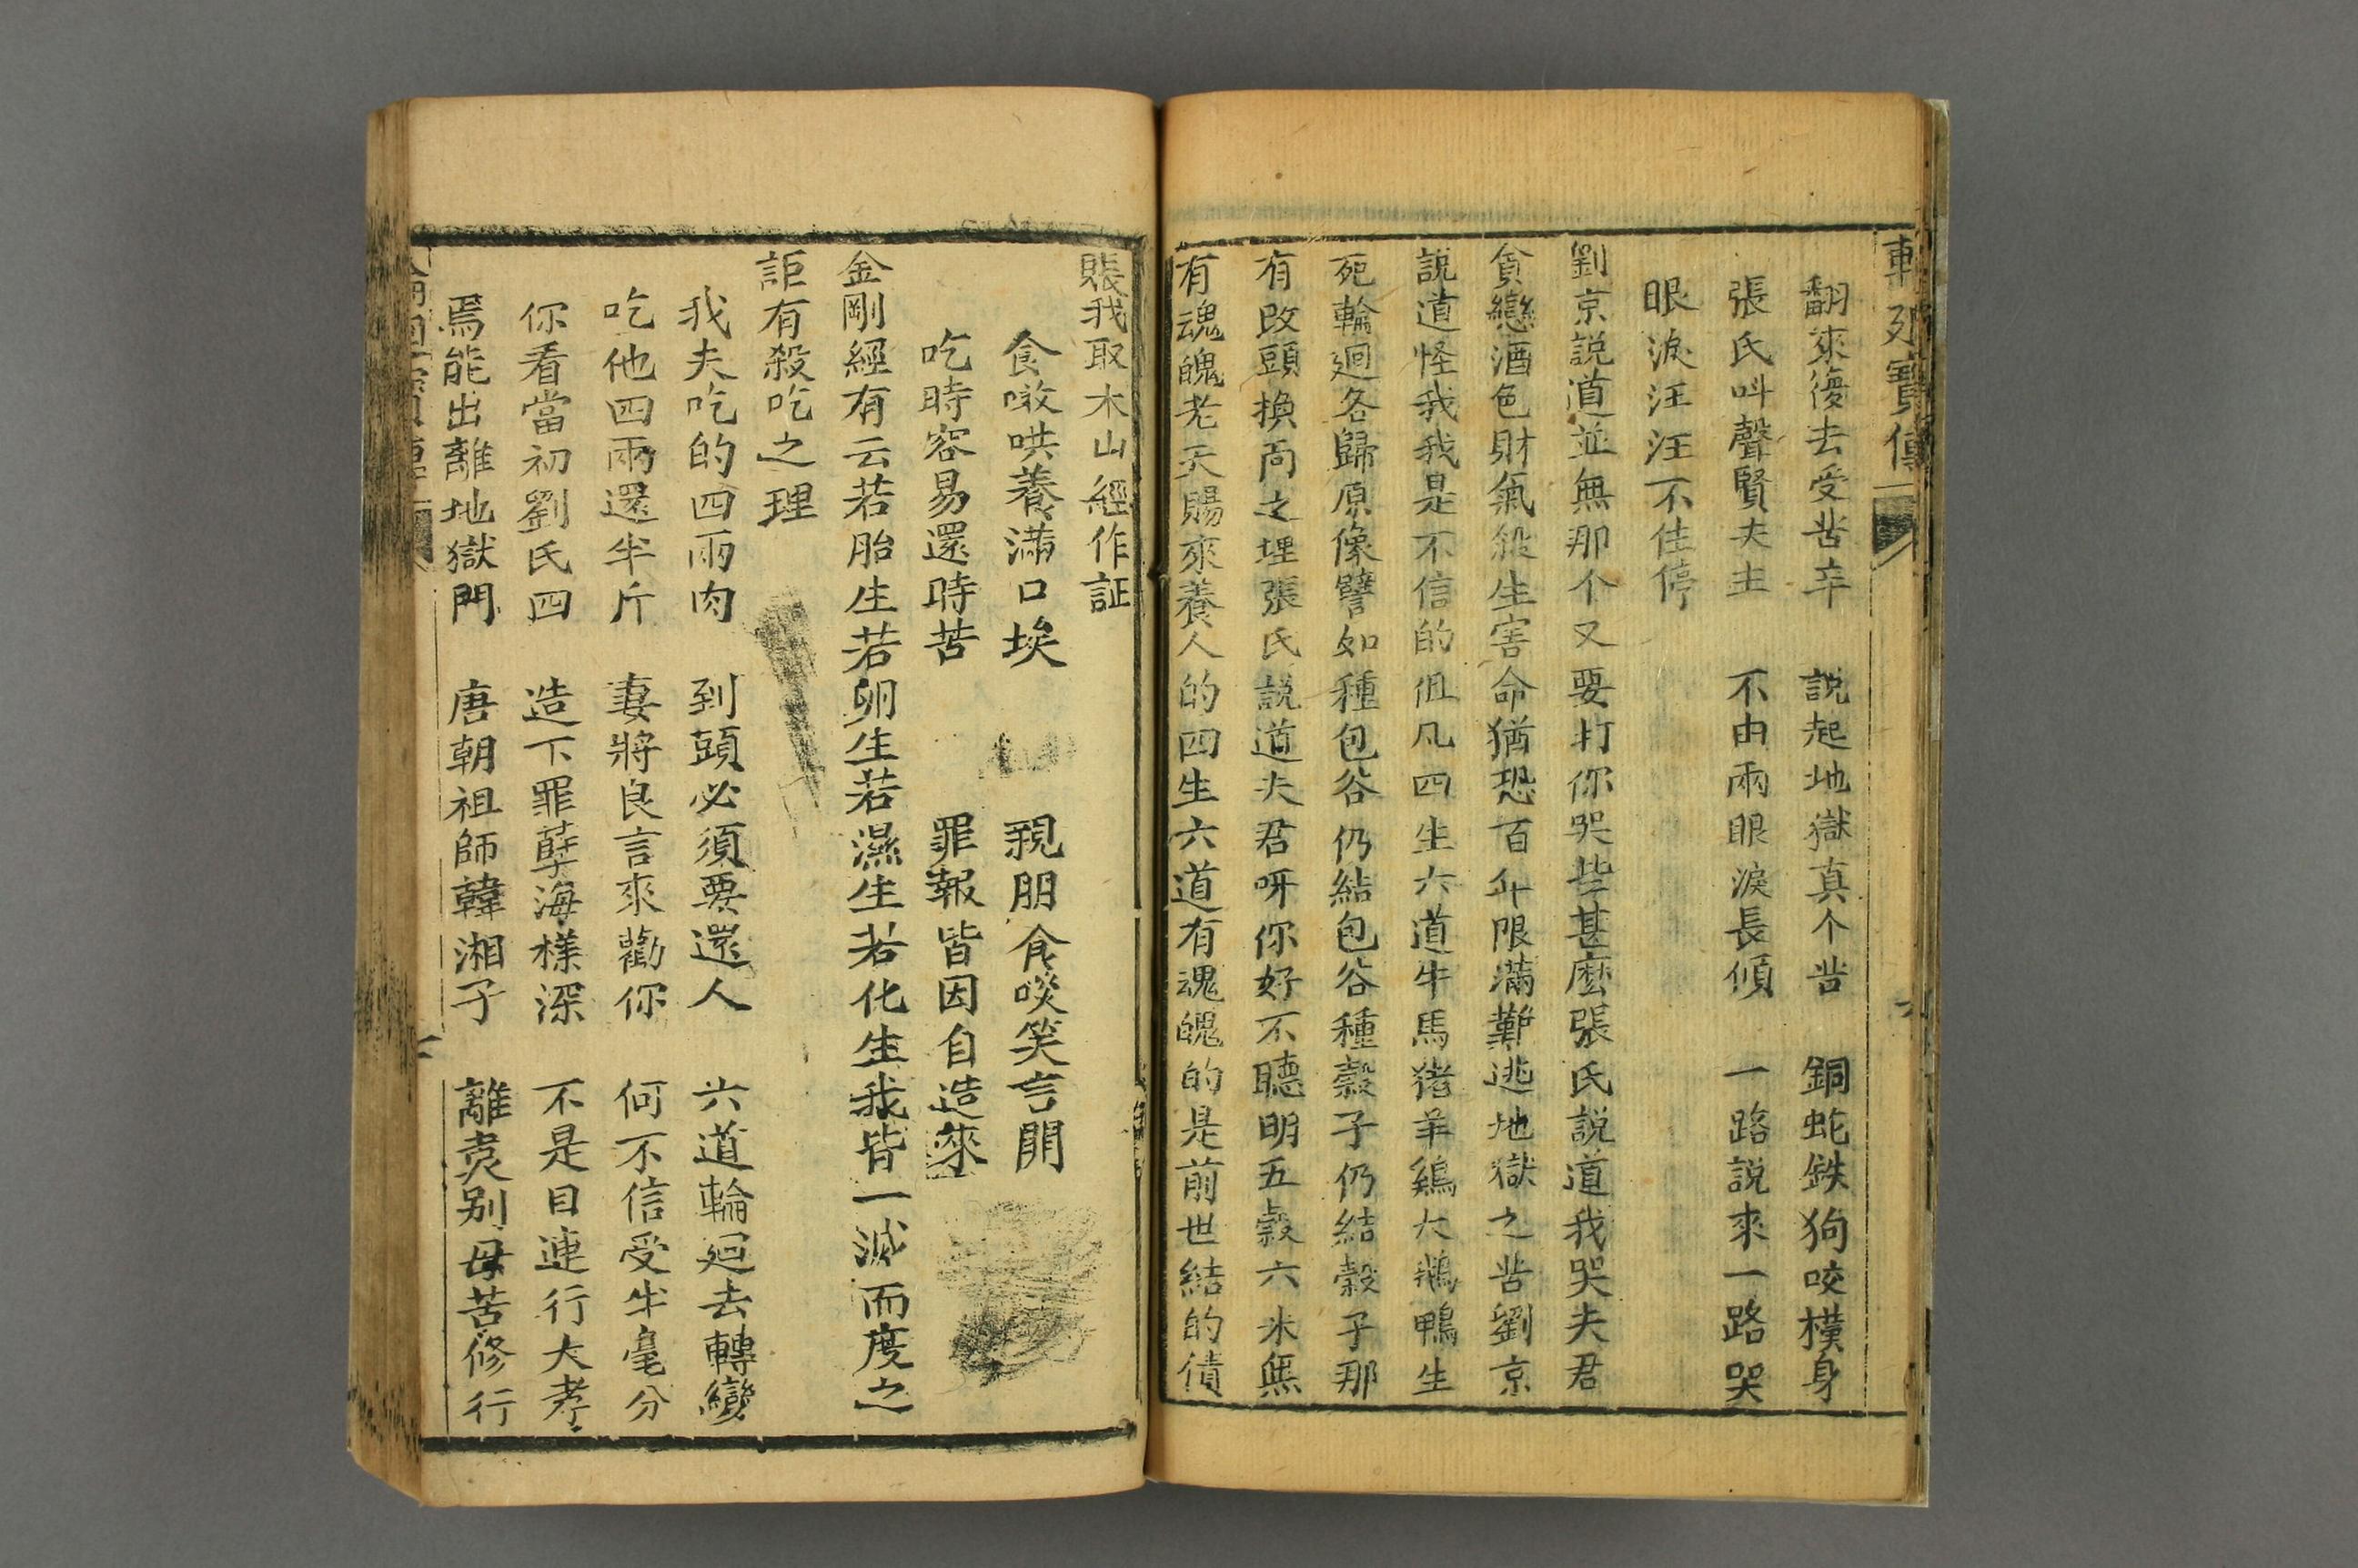 寶傳
翻來復去受苦辛　說起地獄真个苦　銅蛇鉄狗咬橫身
張氏呌聲賢夫主　不由兩眼淚長傾　一路說來一路哭
眼淚汪汪不住停
劉京説道並無那个又要打你哭些甚麽張氏説道我哭夫君
貪戀酒色財氣殺生害命猶恐百年限滿難逃地獄之苦劉京
說道怪我我是不信的但凡四生六道牛馬猪羊鷄犬鵝鴨生
死輪廻各歸原像譬如種包谷仍結包谷種穀子仍結穀子那
有改頭換面之理張氏説道夫君呀你好不聰明五穀六米無
有魂魄老天賜來養人的四生六道有魂魄的是前世結的債
賬我取木山經作証
食噉哄養滿口埃　親朋食啖笑言開
吃時容易還時苦　罪報皆因自造來
金剛經有云若胎生若卵生若濕生若化生我皆一滅而度之
詎有殺吃之理
我夫吃的四兩肉　到頭必須要還人　六道輪廻去轉變
吃他四兩還半斤　妻將良言來勸你　何不信受半毫分
你看當初劉氏四　造下罪孽海樣深　不是目連行大孝
焉能出離地獄門　唐朝祖師韓湘子　離妻别母苦修行